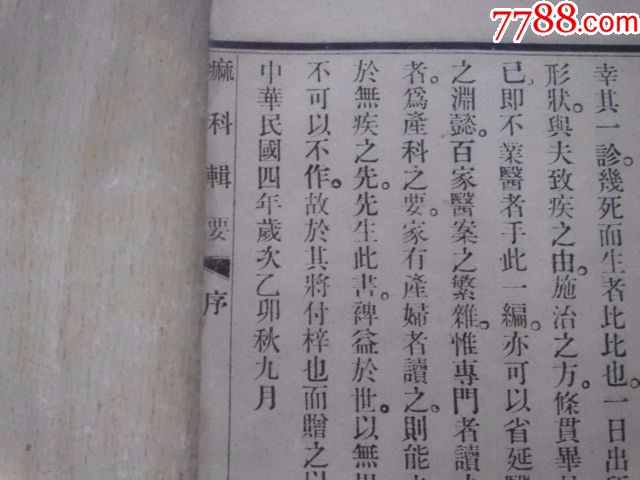 7788.com
幸其一診。幾死而生者比比也。一日出所
形狀。與夫致疾之由。施治之方。條貫畢
已。即不業醫者手此一編。亦可以省延醫
之淵懿。百家醫案之繁雜。惟專門者讀
者。爲產科之要。家有產婦者讀之。則能
於無疾之先。先生此書。裨益於世。以無
不可以不作。故於其將付梓也而贈之以
中華民國四年歲次乙卯秋九月
痲科輯要 序